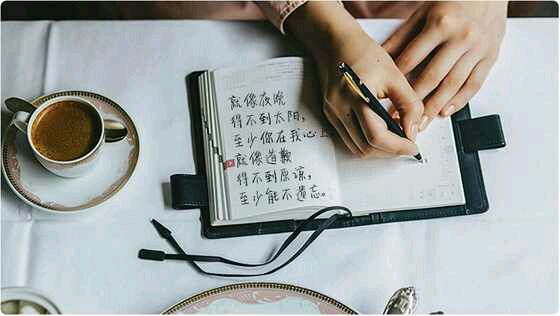 就像夜晚
得不到太阳，
至少你在我心上
就像道歉
得不到原谅，
至少能不遗忘。